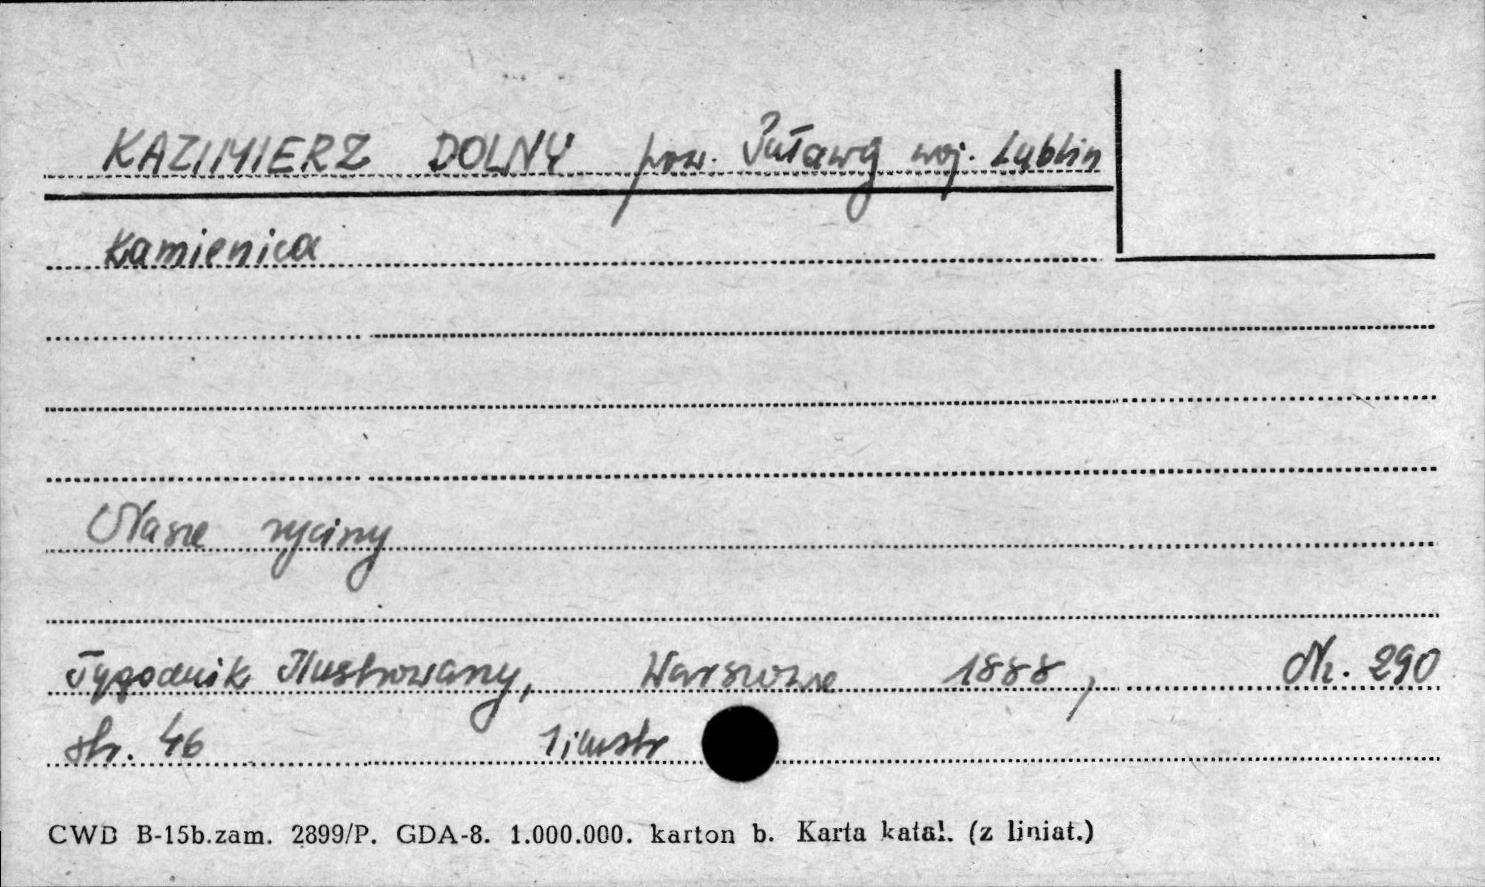 KAZIMIERZ DOLNY pow. Puławy woj. Lublin
Kamienica
Nasze ryciny
Tygodnik Ilustrowany, Warszawa 1888, Nr. 290
str. 46 1 ilustr
CWD B-15b.zam. 2899/P. GDA-8. 1.000.000. karton b. Karta katal. (z liniat.)